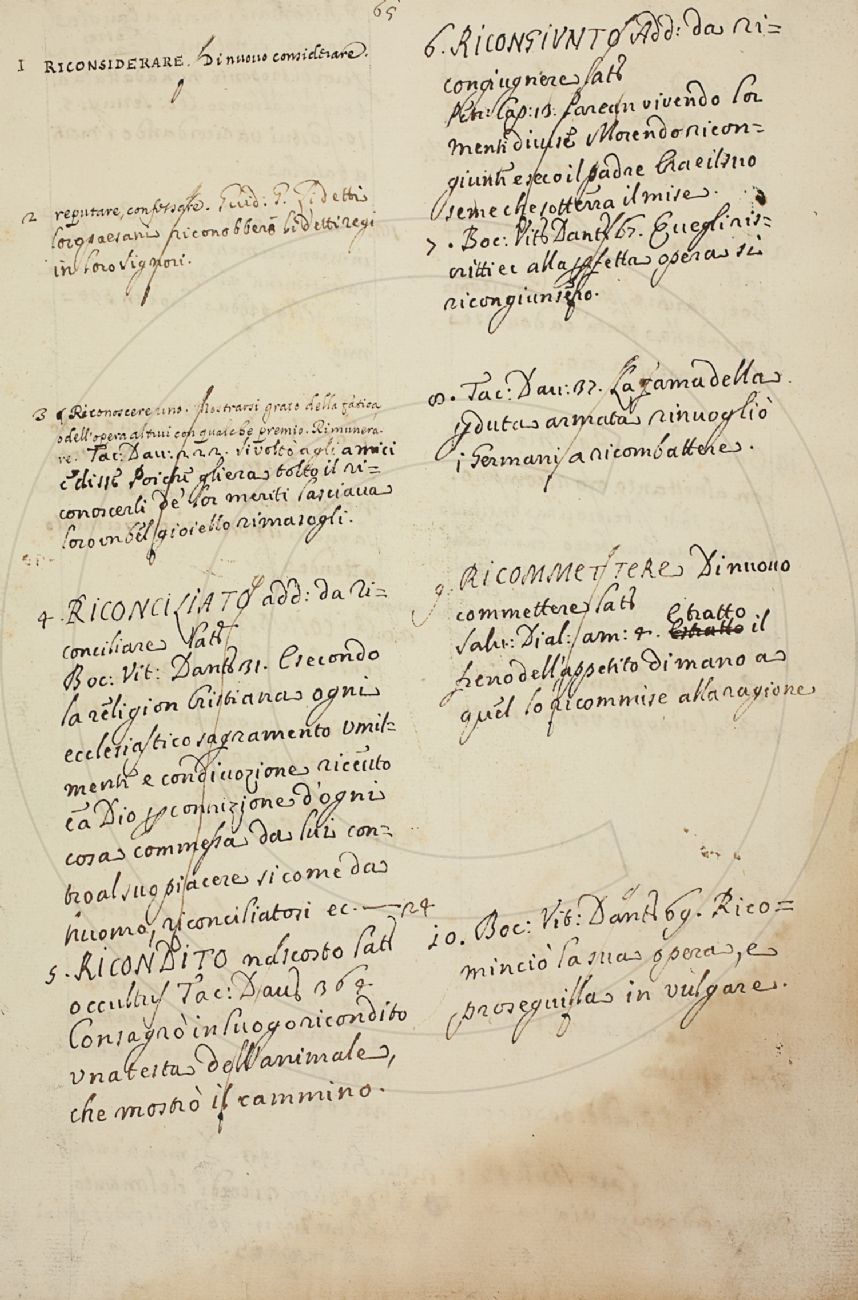 65
1 RICONSIDERARE. Di nuovo considerare.
2 reputare, confessare. Guid: G. I detti
lor paesani riconobbero li detti regi
in loro Signori.
3 Riconoscere uno. Mostrarsi grato della fatica,
o dell'opera altrui con qualche premio. Rimunera-
re. Tac: Dav: 222. Si voltò agli amici
e disse Poiche gli era tolto il ri=
conoscerli de' lor meriti lasciava
loro un bel gioiello rimasogli.
4. RICONCILIATO add: da ri=
conciliare lat:
Boc: Vit: Dant: 31. E secondo
la religion Cristiana ogni
ecclesiastico sagramento umil=
mente e con divozione ricevuto
e a Dio per contrizione d'ogni
cosa commessa da lui con=
tro al suo piacere si come da
huomo, riconciliatosi ec. — 24
5. RICONDITO nascosto lat:
occultus Tac: Dav: 364.
Consagrò in luogo ricondito
una testa dell'animale,
che mostrò il cammino.
6. RICONGIUNTO Add: da ri=
congiugnere lat:
Petr: Cap: 13. Parean vivendo lor
menti divise Morendo ricon=
giunte e seco il padre Era e il suo
seme che sotterra il mise.
7. Boc: Vit: Dant: 67. E quegli ris=
critti ec alla imperfetta opera si
ricongiunsero.
8. Tac: Dav: 37. La fama della
perduta armata rinvogliò
i Germani a ricombattere.
9. RICOMMETTERE Di nuovo
commettere lat:
Salv: Dial: am: 4. E tratto il
freno dell'appetito di mano a
quel lo ricommise alla ragione
10. Boc: Vit: Dant: 69. Rico=
minciò la sua opera, e
proseguilla in vulgare.